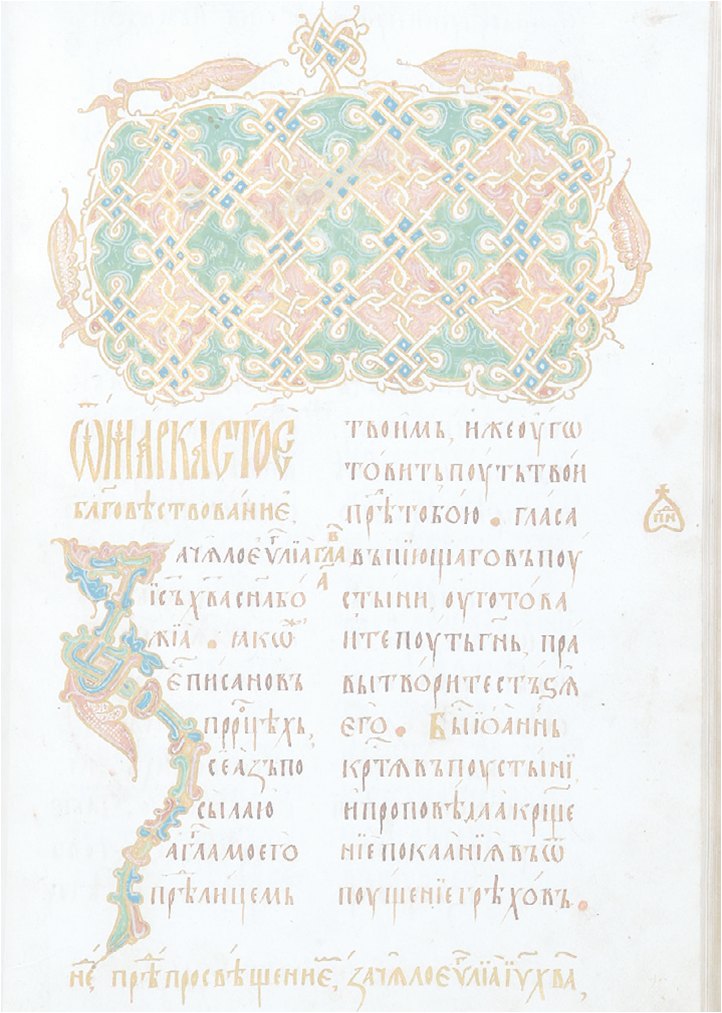 Ѿ МАРКА СТОЕ
БЛАГОВѢСТВОВАНИЕ
Зачѧло еѵⷢ҇лїа гла в҃ а҃
і҆с҃ъ х҃ва сн҃а бо
жїа . ꙗкоⷤ
е҆ писано въ
прⷪ҇рцѣхъ,
се азъ по
сылаю
аⷢ҇гла моего
преⷣ лицемь
твоимь, иже оуго
товить поуть твои
преⷣ тобою . гласа
въпїющаго въ поу
стыни, оуготова
ите поуть гн҃ь, пра
вы творите стьѕѧ
его . Бы іоаннь
крⷭ҇тѧ въ поустыни
и проповѣдаа крⷳ҇ще
нїе покаанїѧ въ ѿ
поущенїе грѣховъ .
п҃и
неⷣ, преⷣ просвѣщенїеⷨ, зачѧло еѵⷢ҇лїа іу҃ х҃ва,